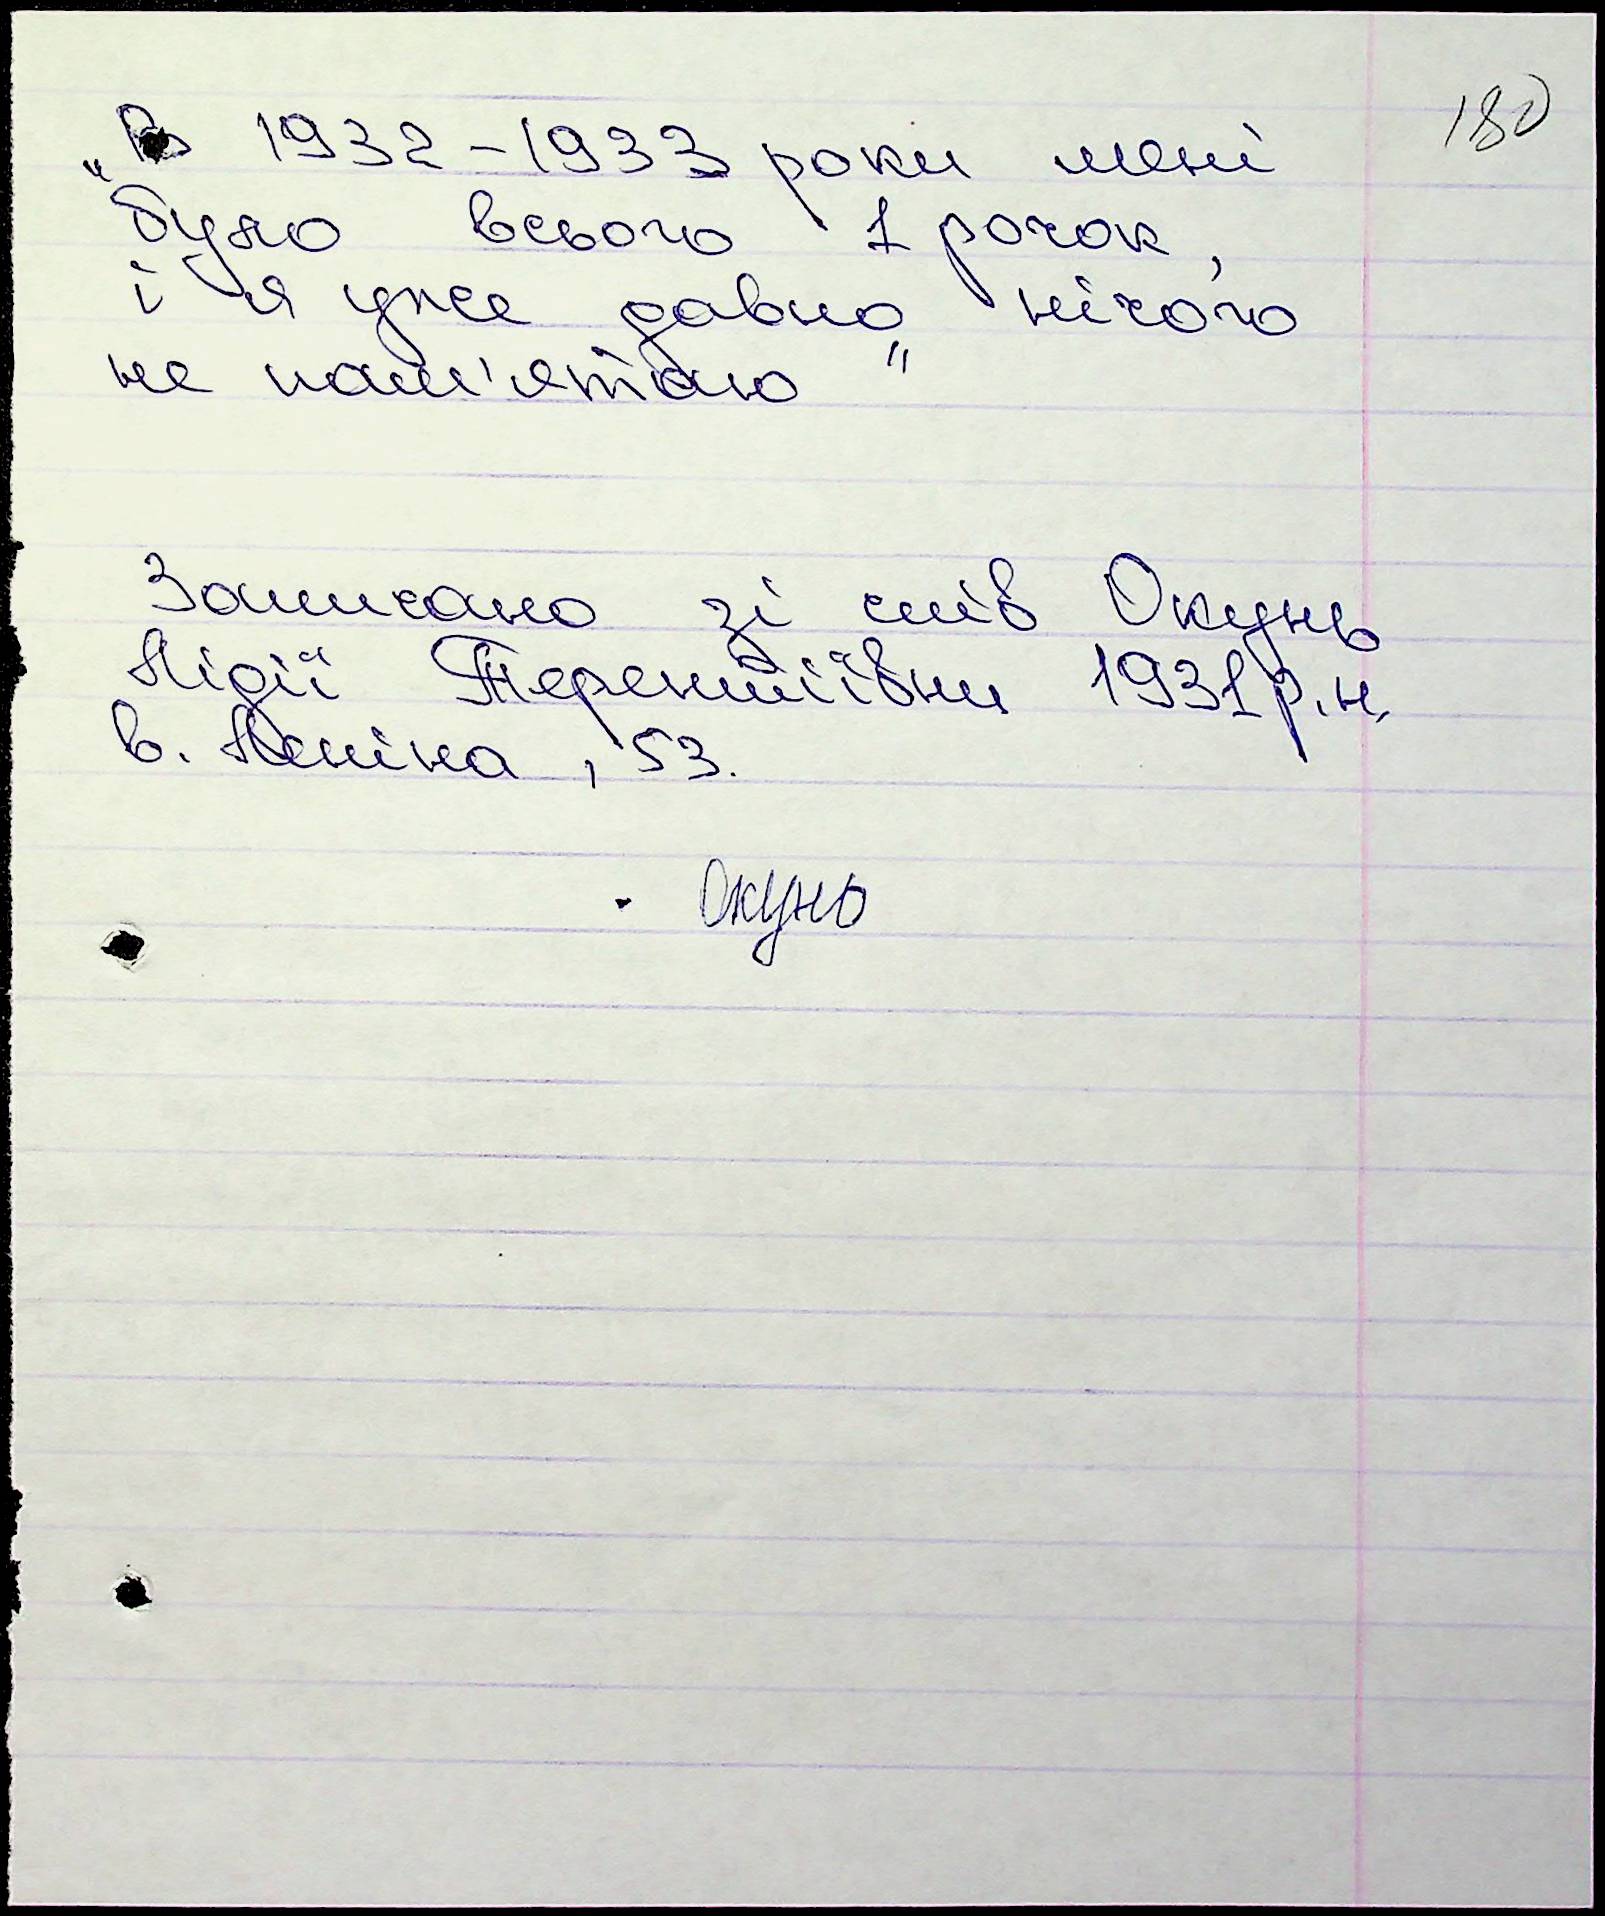 180
„В 1932-1933 роки мені
було всього 1 рочок,
і я уже давно нічого
не пам'ятаю"
Записано зі слів Окунь
Лідії Терентіївни 1931 р.н.
в. Леніна, 53.
Окунь